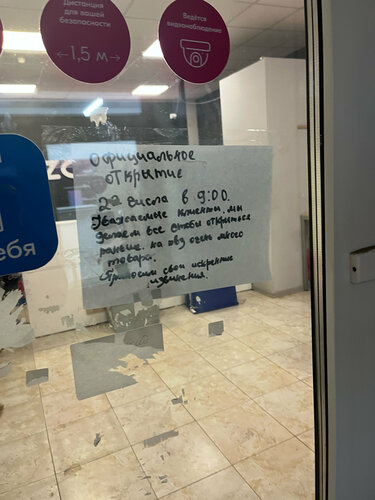 Дистанция
для вашей
безопасности
←1,5 м→
Ведётся
видеонаблюдение
ебя
Официальное
открытие
22 числа в 9:00.
Уважаемые клиенты, мы
делаем все чтобы открыться
раньше. на пвз очень много
товара.
Приносим свои искренние
извинения.